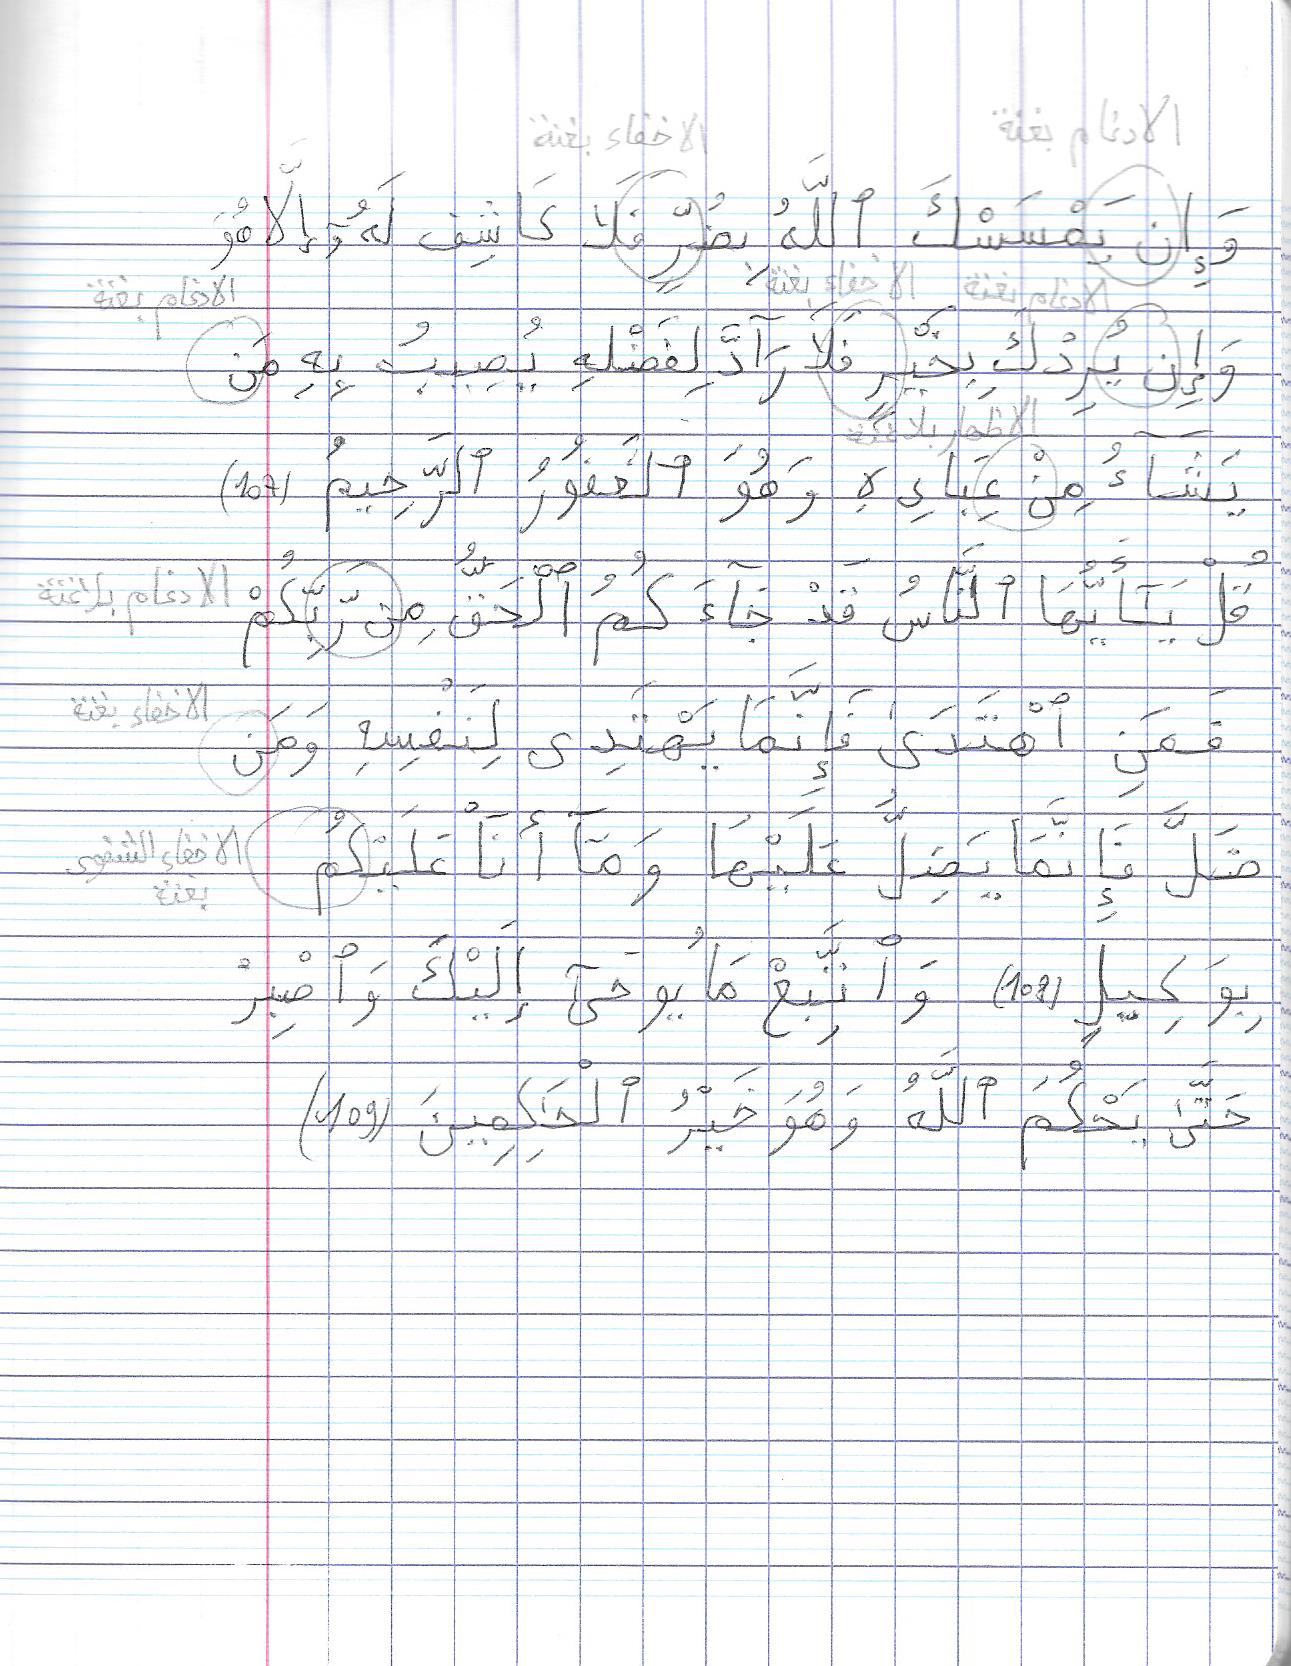 الادغام بغنة الاخفاء بغنة
وَإِن يَمْسَسْكَ ٱللَّهُ بِضُرٍّ فَلَا كَاشِفَ لَهُۥٓ إِلَّا هُوَ
الادغام بغنة الاخفاء بغنة الادغام بغنة
وَإِن يُرِدْكَ بِخَيْرٍ فَلَا رَآدَّ لِفَضْلِهِ يُصِيبُ بِهِ مَن
الاظهار بلا غنة
يَشَآءُ مِنْ عِبَادِهِ وَهُوَ ٱلْغَفُورُ ٱلرَّحِيمُ (107)
قُلْ يَـٰٓأَيُّهَا ٱلنَّاسُ قَدْ جَآءَكُمُ ٱلْحَقُّ مِن رَّبِّكُمْ الادغام بلا غنة
فَمَنِ ٱهْتَدَىٰ فَإِنَّمَا يَهْتَدِى لِنَفْسِهِ وَمَن الاخفاء بغنة
ضَلَّ فَإِنَّمَا يَضِلُّ عَلَيْهَا وَمَآ أَنَا۠ عَلَيْكُم الاخفاء الشفوى بغنة
بِوَكِيلٍ (108) وَٱتَّبِعْ مَا يُوحَىٰٓ إِلَيْكَ وَٱصْبِرْ
حَتَّىٰ يَحْكُمَ ٱللَّهُ وَهُوَ خَيْرُ ٱلْحَـٰكِمِينَ (109)